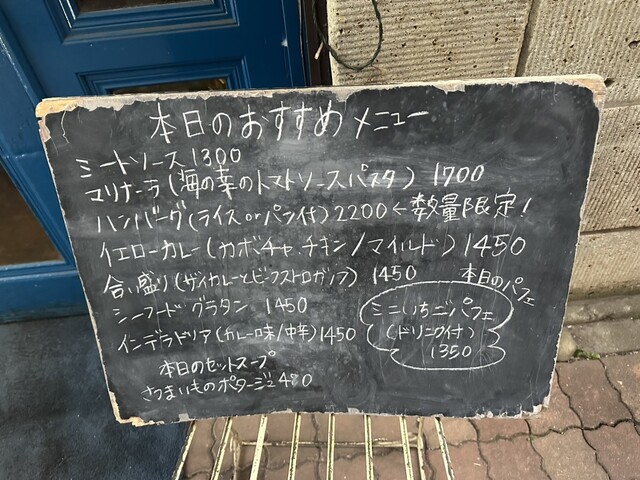 本日のおすすめメニュー
ミートソース 1300
マリナーラ(海の幸のトマトソースパスタ) 1700
ハンバーグ(ライスorパン付)2200←数量限定!
イエローカレー(カボチャ、チキン/マイルド) 1450
合い盛り(ザイカレーとビーフストロガノフ) 1450
シーフードグラタン 1450
インデラドリア(カレー味/中辛)1450
本日のパフェ
ミニいちごパフェ
(ドリンク付)
1350
本日のセットスープ
さつまいものポタージュ 450